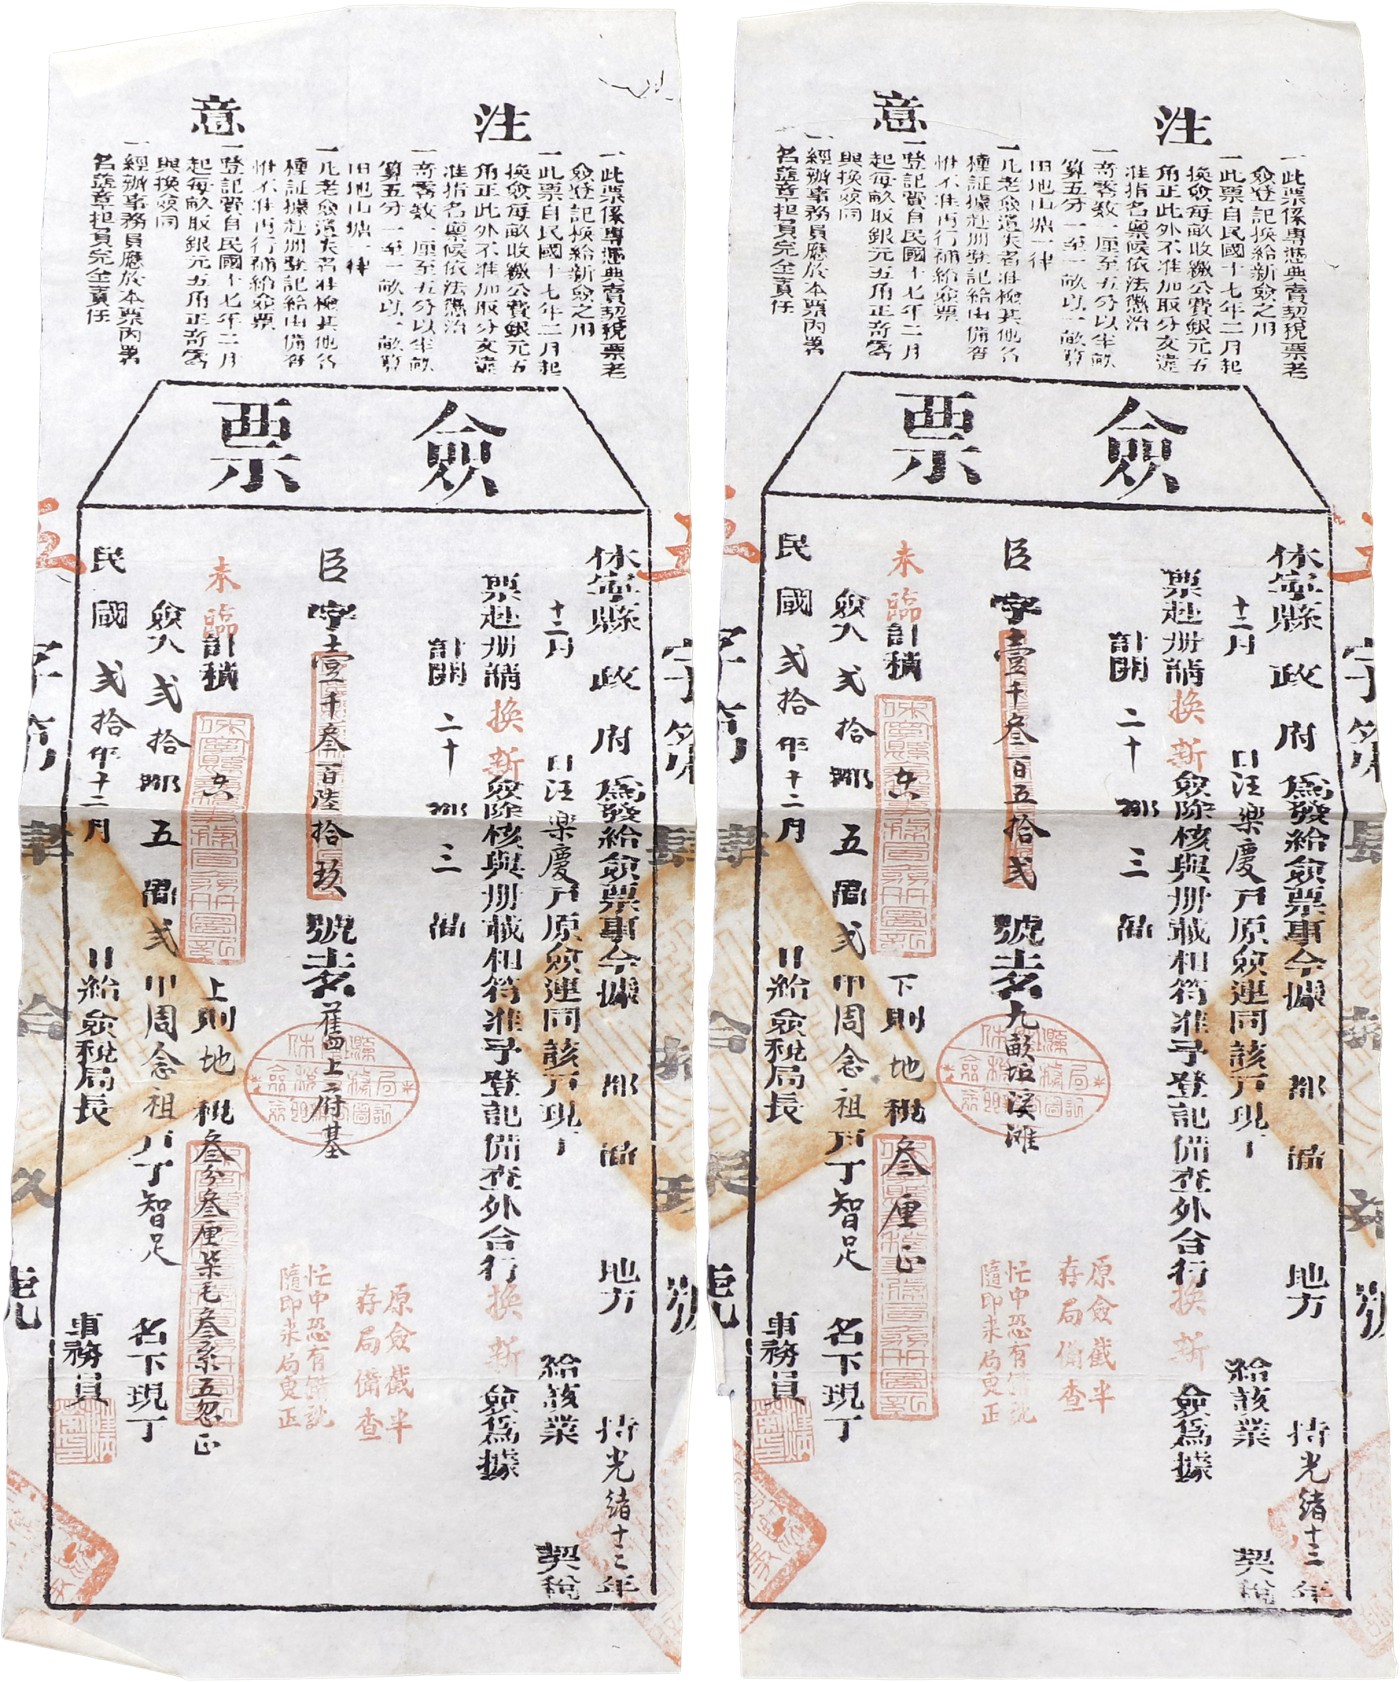 注意
一此票係專憑典賣契稅票老
僉登記換給新僉之用
一此票自民國十七年二月起
換僉每畝收繳公費銀元五
角正此外不准加取分文違
准指名稟候依法懲治
一奇零数一厘至五分以半畝
算五分一至一畝以一畝算
田地山塘一律
一凡老僉遺失者准檢其他各
種証據赴冊登記給由備查
惟不准再行補給僉票
一登記費自民國十七年二月
起每畝取銀元五角正奇零
與換僉同
一經辦事務員應於本票內署
名蓋章担負完全責任
僉票
休寧縣政府為發給僉票事今據 都啚 地方 持光緒十二年
十二月 日汪樂慶戶原僉連同該戶現丁 給該業 契稅
票赴冊請換新僉除核與冊載相符准予登記備查外合行換新僉為據
計開 二十都三啚
臣字壹千叁百陸拾玖號土名舊四上府基
原僉截半
存局備查
忙中恐有備訛
隨即来局更正
未臨
計積 上則地稅叁分叁厘柒毛叁系五忽正
僉入弍拾都五啚弍甲周念祖戶丁智足 名下現丁
民國弍拾年十二月 日給僉稅局長 事務員
字第肆拾玖號
注意
一此票係專憑典賣契稅票老
僉登記換給新僉之用
一此票自民國十七年二月起
換僉每畝收繳公費銀元五
角正此外不准加取分文違
准指名稟候依法懲治
一奇零数一厘至五分以半畝
算五分一至一畝以一畝算
田地山塘一律
一凡老僉遺失者准檢其他各
種証據赴冊登記給由備查
惟不准再行補給僉票
一登記費自民國十七年二月
起每畝取銀元五角正奇零
與換僉同
一經辦事務員應於本票內署
名蓋章担負完全責任
僉票
休寧縣政府為發給僉票事今據 都啚 地方 持光緒十三年
十二月 日汪樂慶戶原僉連同該戶現丁 給該業 契稅
票赴冊請換新僉除核與冊載相符准予登記備查外合行換新僉為據
計開 二十都三啚
臣字壹千叁百五拾弍號土名九畝坵溪滩
原僉截半
存局備查
忙中恐有備訛
隨即来局更正
未臨
計積 下則地稅叁厘正
僉入弍拾都五啚弍甲周念祖戶丁智足 名下現丁
民國弍拾年十二月 日給僉稅局長 事務員